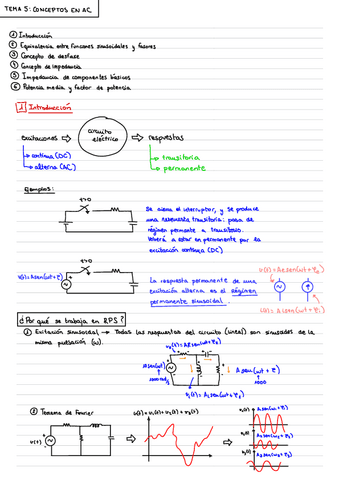 TEMA 5: CONCEPTOS EN AC
① Introducción
② Equivalencia entre funciones sinusoidales y fasores
③ Concepto de desfase
④ Concepto de impedancia
⑤ Impedancia de componentes básicos
⑥ Potencia media y factor de potencia
1 Introducción
excitaciones → circuito eléctrico → respuestas
→ continua (DC)
→ alterna (AC)
→ transitoria
→ permanente
Ejemplos:
t=0
Se cierra el interruptor, y se produce
una respuesta transitoria: pasa de
régimen permanente a transitorio.
Volverá a estar en permanente por la
excitación continua (DC)
t=0
La respuesta permanente de una
excitación alterna es el régimen
permanente sinusoidal.
¿Por qué se trabaja en RPS?
① Excitación sinusoidal → Todas las respuestas del circuito (lineal) son sinusoides de la
misma pulsación (ω).
② Teorema de Fourier
v(t)